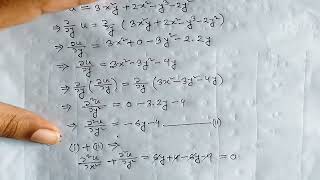 u = 3x²y + 2x² - y³ - 2y²
⇒ ∂/∂y u = ∂/∂y (3x²y + 2x² - y³ - 2y²)
⇒ ∂u/∂y = 3x² + 0 - 3y² - 2.2y
⇒ ∂u/∂y = 3x² - 3y² - 4y
⇒ ∂/∂y (∂u/∂y) = ∂/∂y (3x² - 3y² - 4y)
⇒ ∂²u/∂y² = 0 - 3.2y - 4
⇒ ∂²u/∂y² = -6y - 4 (ii)
(i) + (ii) ⇒
∂²u/∂x² + ∂²u/∂y² = 6y + 4 - 6y - 4 = 0